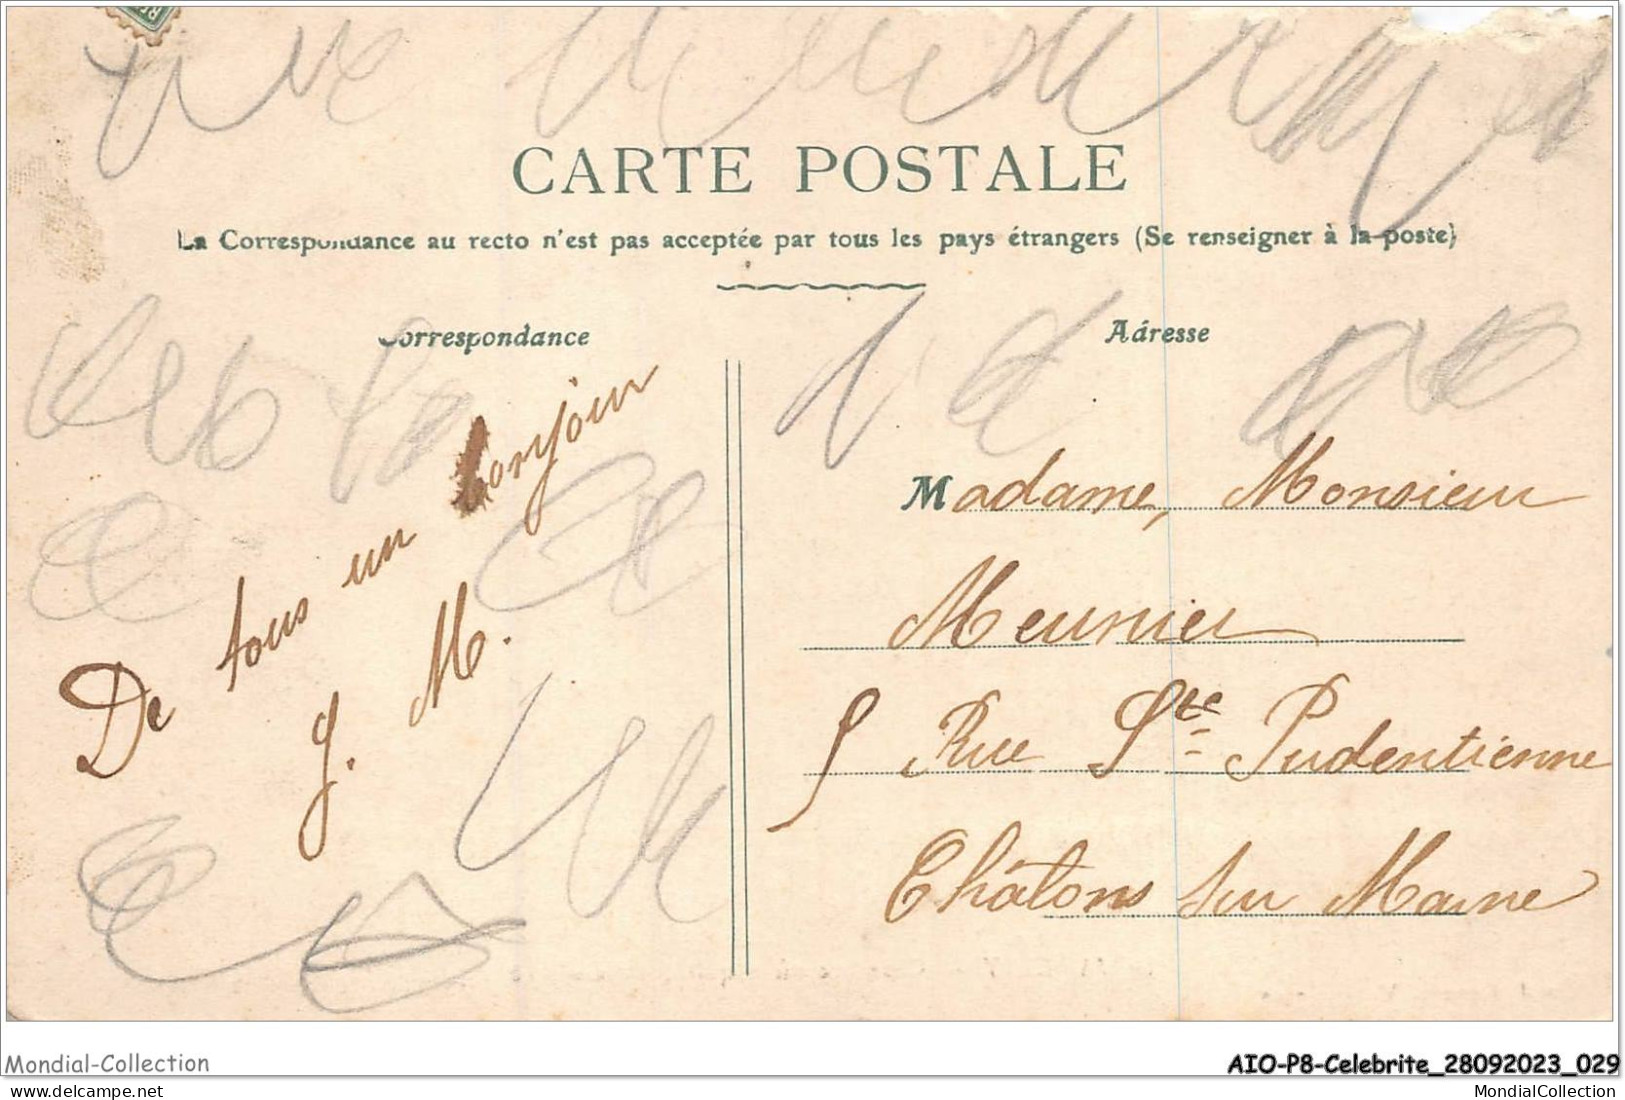 CARTE POSTALE
La Correspondance au recto n'est pas acceptée par tous les pays étrangers (Se renseigner à la poste)
Correspondance
De tous un bonjour
J. M.
Adresse
Madame, Monsieur
Meunier
5 Rue Ste Pudentienne
Châlons sur Marne
Mondial-Collection
AIO-P8-Celebrite_28092023_029
MondialCollection
MondialCollection